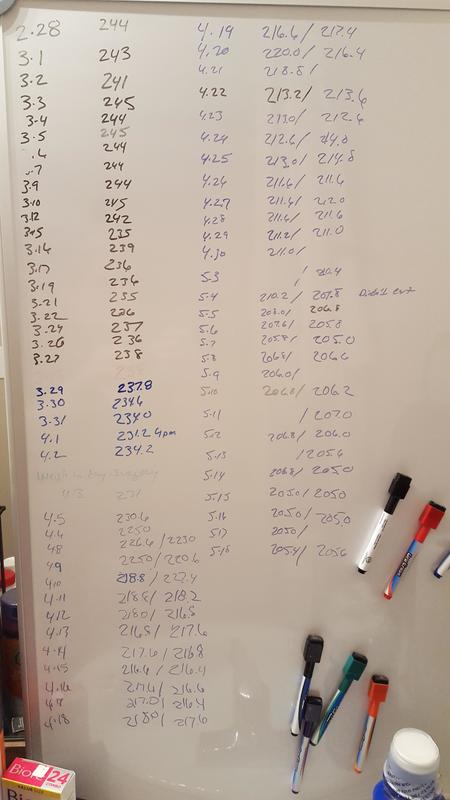 2.28 244
3.1 243
3.2 241
3.3 245
3.4 244
3.5 245
.6 244
.7 244
3.9 244
3.10 245
3.12 242
235
3.16 239
3.17 236
3.19 236
3.21 235
3.22 236
3.24 237
3.26 236
3.27 238
3.29 237.8
3.30 234.6
3.31 234.0
4.1 231.2 4pm
4.2 234.2
4.3 231
4.5 230.6
4.6 225.0
4.8 226.6/ 223.0
4.9 225.0/ 220.6
4.10 218.8/ 227.4
4.11 218.8/ 218.2
4.12 218.0/ 216.8
4.13 216.8/ 217.6
4.14 217.6/ 216.8
4.15 216.6/ 216.4
4.16 217.6/ 216.6
4.17 217.0/ 216.4
4.18 218.0/ 217.6
4.19 216.6/ 217.4
4.20 220.0/ 216.4
4.21 218.8/
4.22 213.2/ 213.6
4.23 213.0/ 212.6
4.24 212.6/
4.25 213.0/ 214.8
4.26 211.6/ 211.6
4.27 211.6/ 212.0
4.28 211.6/ 211.6
4.29 211.2/ 211.0
4.30 211.0/
5.3 /
5.4 210.2/ 207.8
5.5 208.0/ 206.8
5.6 207.6/ 205.8
5.7 205.8/ 205.0
5.8 206.6
5.9 206.0/
5.10 206.0/ 206.2
5.11 / 207.0
5.12 206.8/ 206.0
5.13 / 205.6
5.14 205.0
5.15 205.0/ 205.0
5.16 205.0/ 205.0
5.17 205.0/
5.18 205.4/ 205.6
24